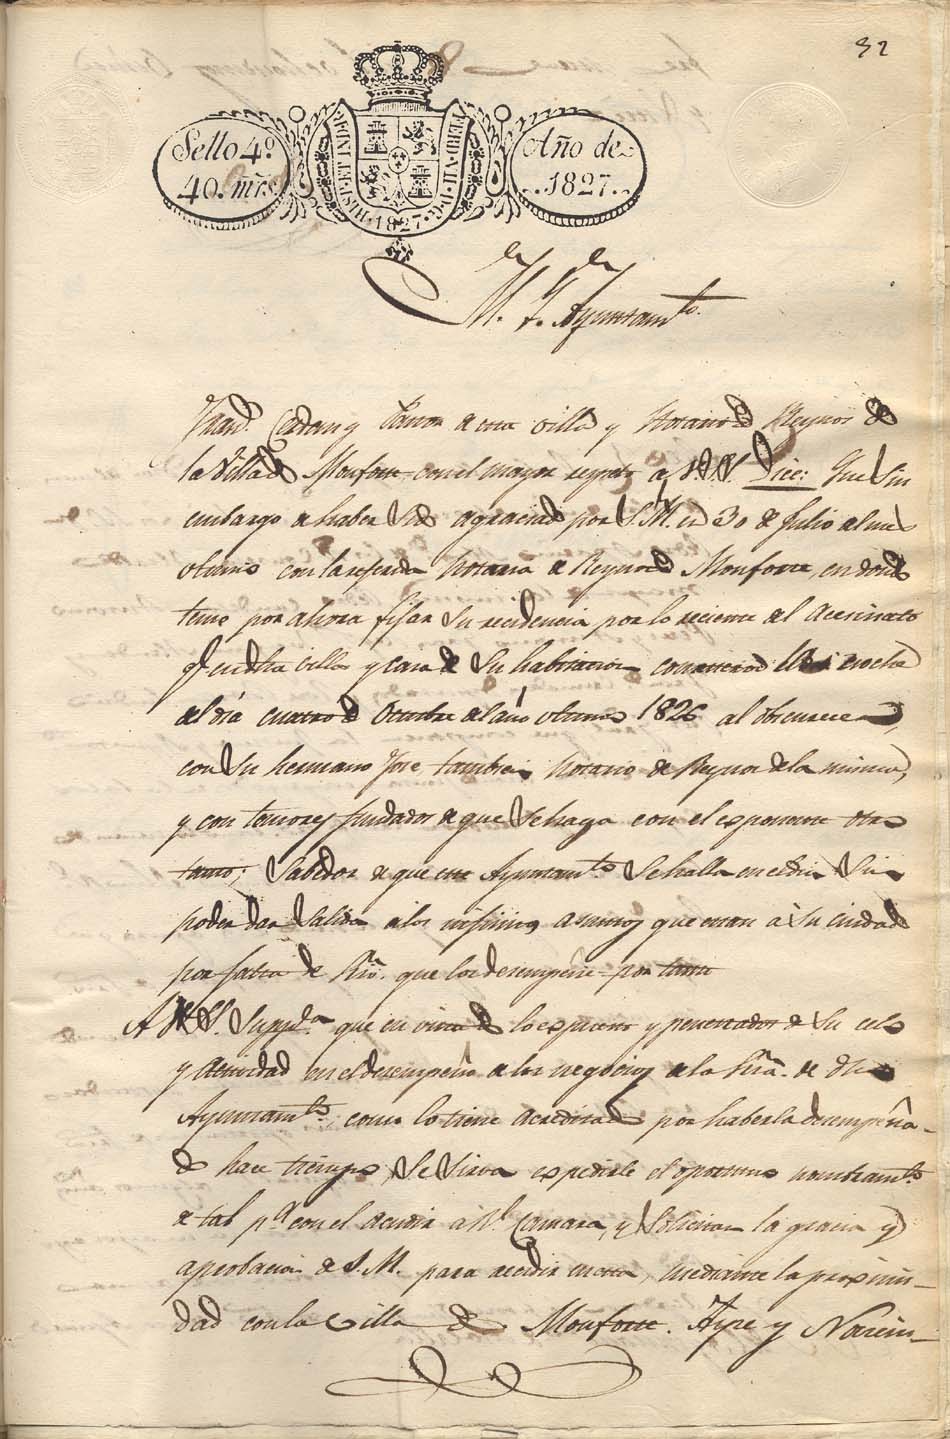 32
Sello 4º
40. mrs.
HISP. ET IND. R.
FERD. VII. D. G.
1827
Año de
1827.
M. Y. Ayuntamto.
Cadan y de esta villa y Notario de Reynos de
la Villa de Monforte con el mayor respeto a V.S. Dice: Que sin
embargo de haber sido agraciado por S.M. en 30 de Julio del mes
ultimo con la referida Notaría de Reynos de Monforte, en donde
teme por ahora fijar su recidencia por lo reciente del acesinato
qe en dha villa y casa de su habitacion cometieron la noche
del día cuatro de Octubre del año ultimo 1826 al obscurecer,
con su hermano José, tambien Notario de Reynos de la misma,
y con temores fundados de que se haga con el exponente otro
tanto; Sabedor de que este Ayuntamto se halla en el dia sin
poder dar salida a los infinitos asuntos que estan à su cuidado
por falta de Srio. que los desempeñe por tanto
A V.S. Suppca que en vista de lo expuesto y penetrados de su celo
y actividad en el desempeño de los negocios de la Sria. de dho
Ayuntamto, como lo tiene acreditado por haberla desempeña-
do hace tiempo, se sirva expedirle el oportuno nombramto
de tal pa con el acudir a Rl Camara, y solicitar la gracia y
aprobacion de S.M. para recidir en esta, mediante la proximi-
dad con la villa de Monforte. Aspe y Noviem-